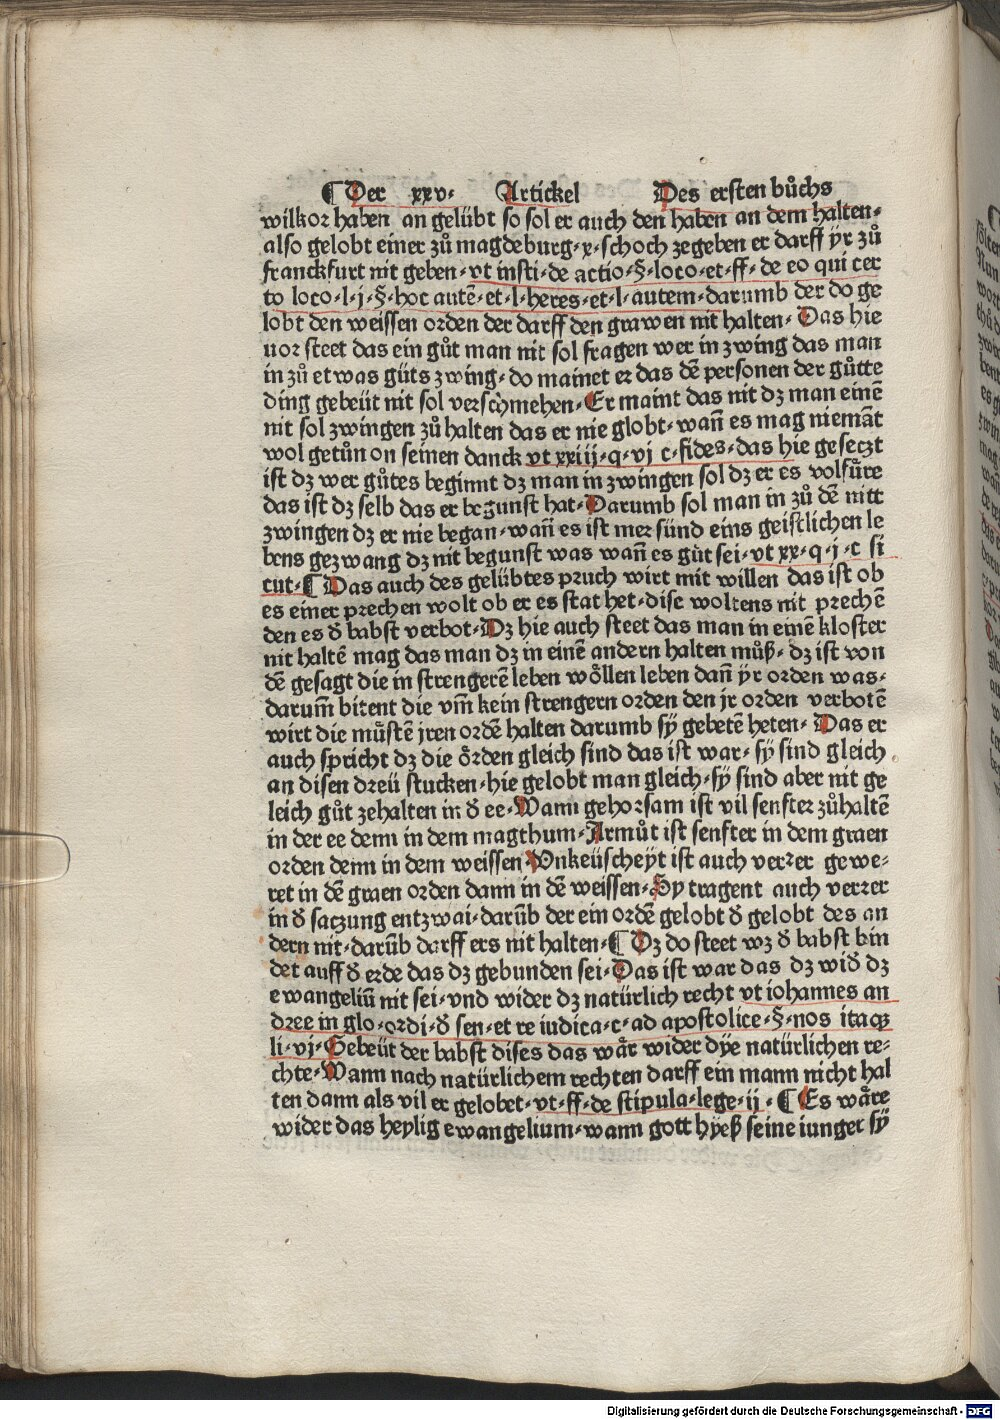 ¶Der xxv· Artickel Des ersten bůchs
wilkor haben an gelübt so sol er auch den haben an dem halten·
also gelobt einer zů magdeburg·x·schoch zegeben er darff ÿr zů
franckfurt nit geben·vt insti·de actio·§·loco·et·ff·de eo qui cer
to loco·l·j·§·hoc autē·et·l·heres·et·l·autem·darumb der do ge
lobt den weissen orden der darff den grawen nit halten·Das hie
uor steet das ein gůt man nit sol fragen wer in zwing das man
in zů etwas gůts zwing·do mainet er das dē personen der gůtte
ding gebeüt nit sol verschmehen·Er maint das nit dz man einē
nit sol zwingen zů halten das er nie globt·wañ es mag niemāt
wol getůn on seinen danck vt xxiij·q·vj c·fides·das hie gesetzt
ist dz wer gůtes beginnt dz man in zwingen sol dz er es volfüre
das ist dz selb das er begunst hat·Darumb sol man in zů dē nitt
zwingen dz er nie began·wañ es ist mer sünd eins geistlichen le
bens gezwang dz nit begunst was wañ es gůt sei·vt xx·q·j·c si
cut·¶Das auch des gelübtes pruch wirt mit willen das ist ob
es einer prechen wolt ob er es stat het·dise woltens nit prechē
den es d̄ babst verbot·Dz hie auch steet das man in einē kloster
nit haltē mag das man dz in einē andern halten můß·dz ist von
dē gesagt die in strengerē leben wöllen leben dañ ÿr orden was·
darum̄ bitent die vm̄ kein strengern orden den jr orden verbotē
wirt die müstē jren ordē halten darumb sÿ gebetē heten·Das er
auch spricht dz die örden gleich sind das ist war·sÿ sind gleich
an disen dreü stucken·hie gelobt man gleich·sÿ sind aber nit ge
leich gůt zehalten in d̄ ee·Wann gehorsam ist vil senfter zů haltē
in der ee denn in dem magthum·Armůt ist senfter in dem graen
orden denn in dem weissen·Vnkeüscheÿt ist auch verrer gewe⸗
ret in dē graen orden dann in dē weissen·Sy tragent auch verrer
in d̄ saczung entzwai·darūb der ein ordē gelobt d̄ gelobt des an
dern nit·darūb darff ers nit halten·¶Dz do steet wz d̄ babst bin
det auff d̄ erde das dz gebunden sei·Das ist war das dz wid̄ dz
ewangeliū nit sei·vnd wider dz natürlich recht vt iohannes an
dree in glo·ordi·d̄ sen·et re iudica·c·ad apostolice·§·nos itaqꝫ
li·vj·Gebeüt der babst dises das wår wider dÿe natürlichen re⸗
chte·Wann nach natürlichem rechten darff ein mann nicht hal
ten dann als vil er gelobet·vt·ff·de stipula·lege·ij·¶Es wåre
wider das heylig ewangelium·wann gott hÿeß seine iunger sÿ
Digitalisierung gefördert durch die Deutsche Forschungsgemeinschaft - DFG